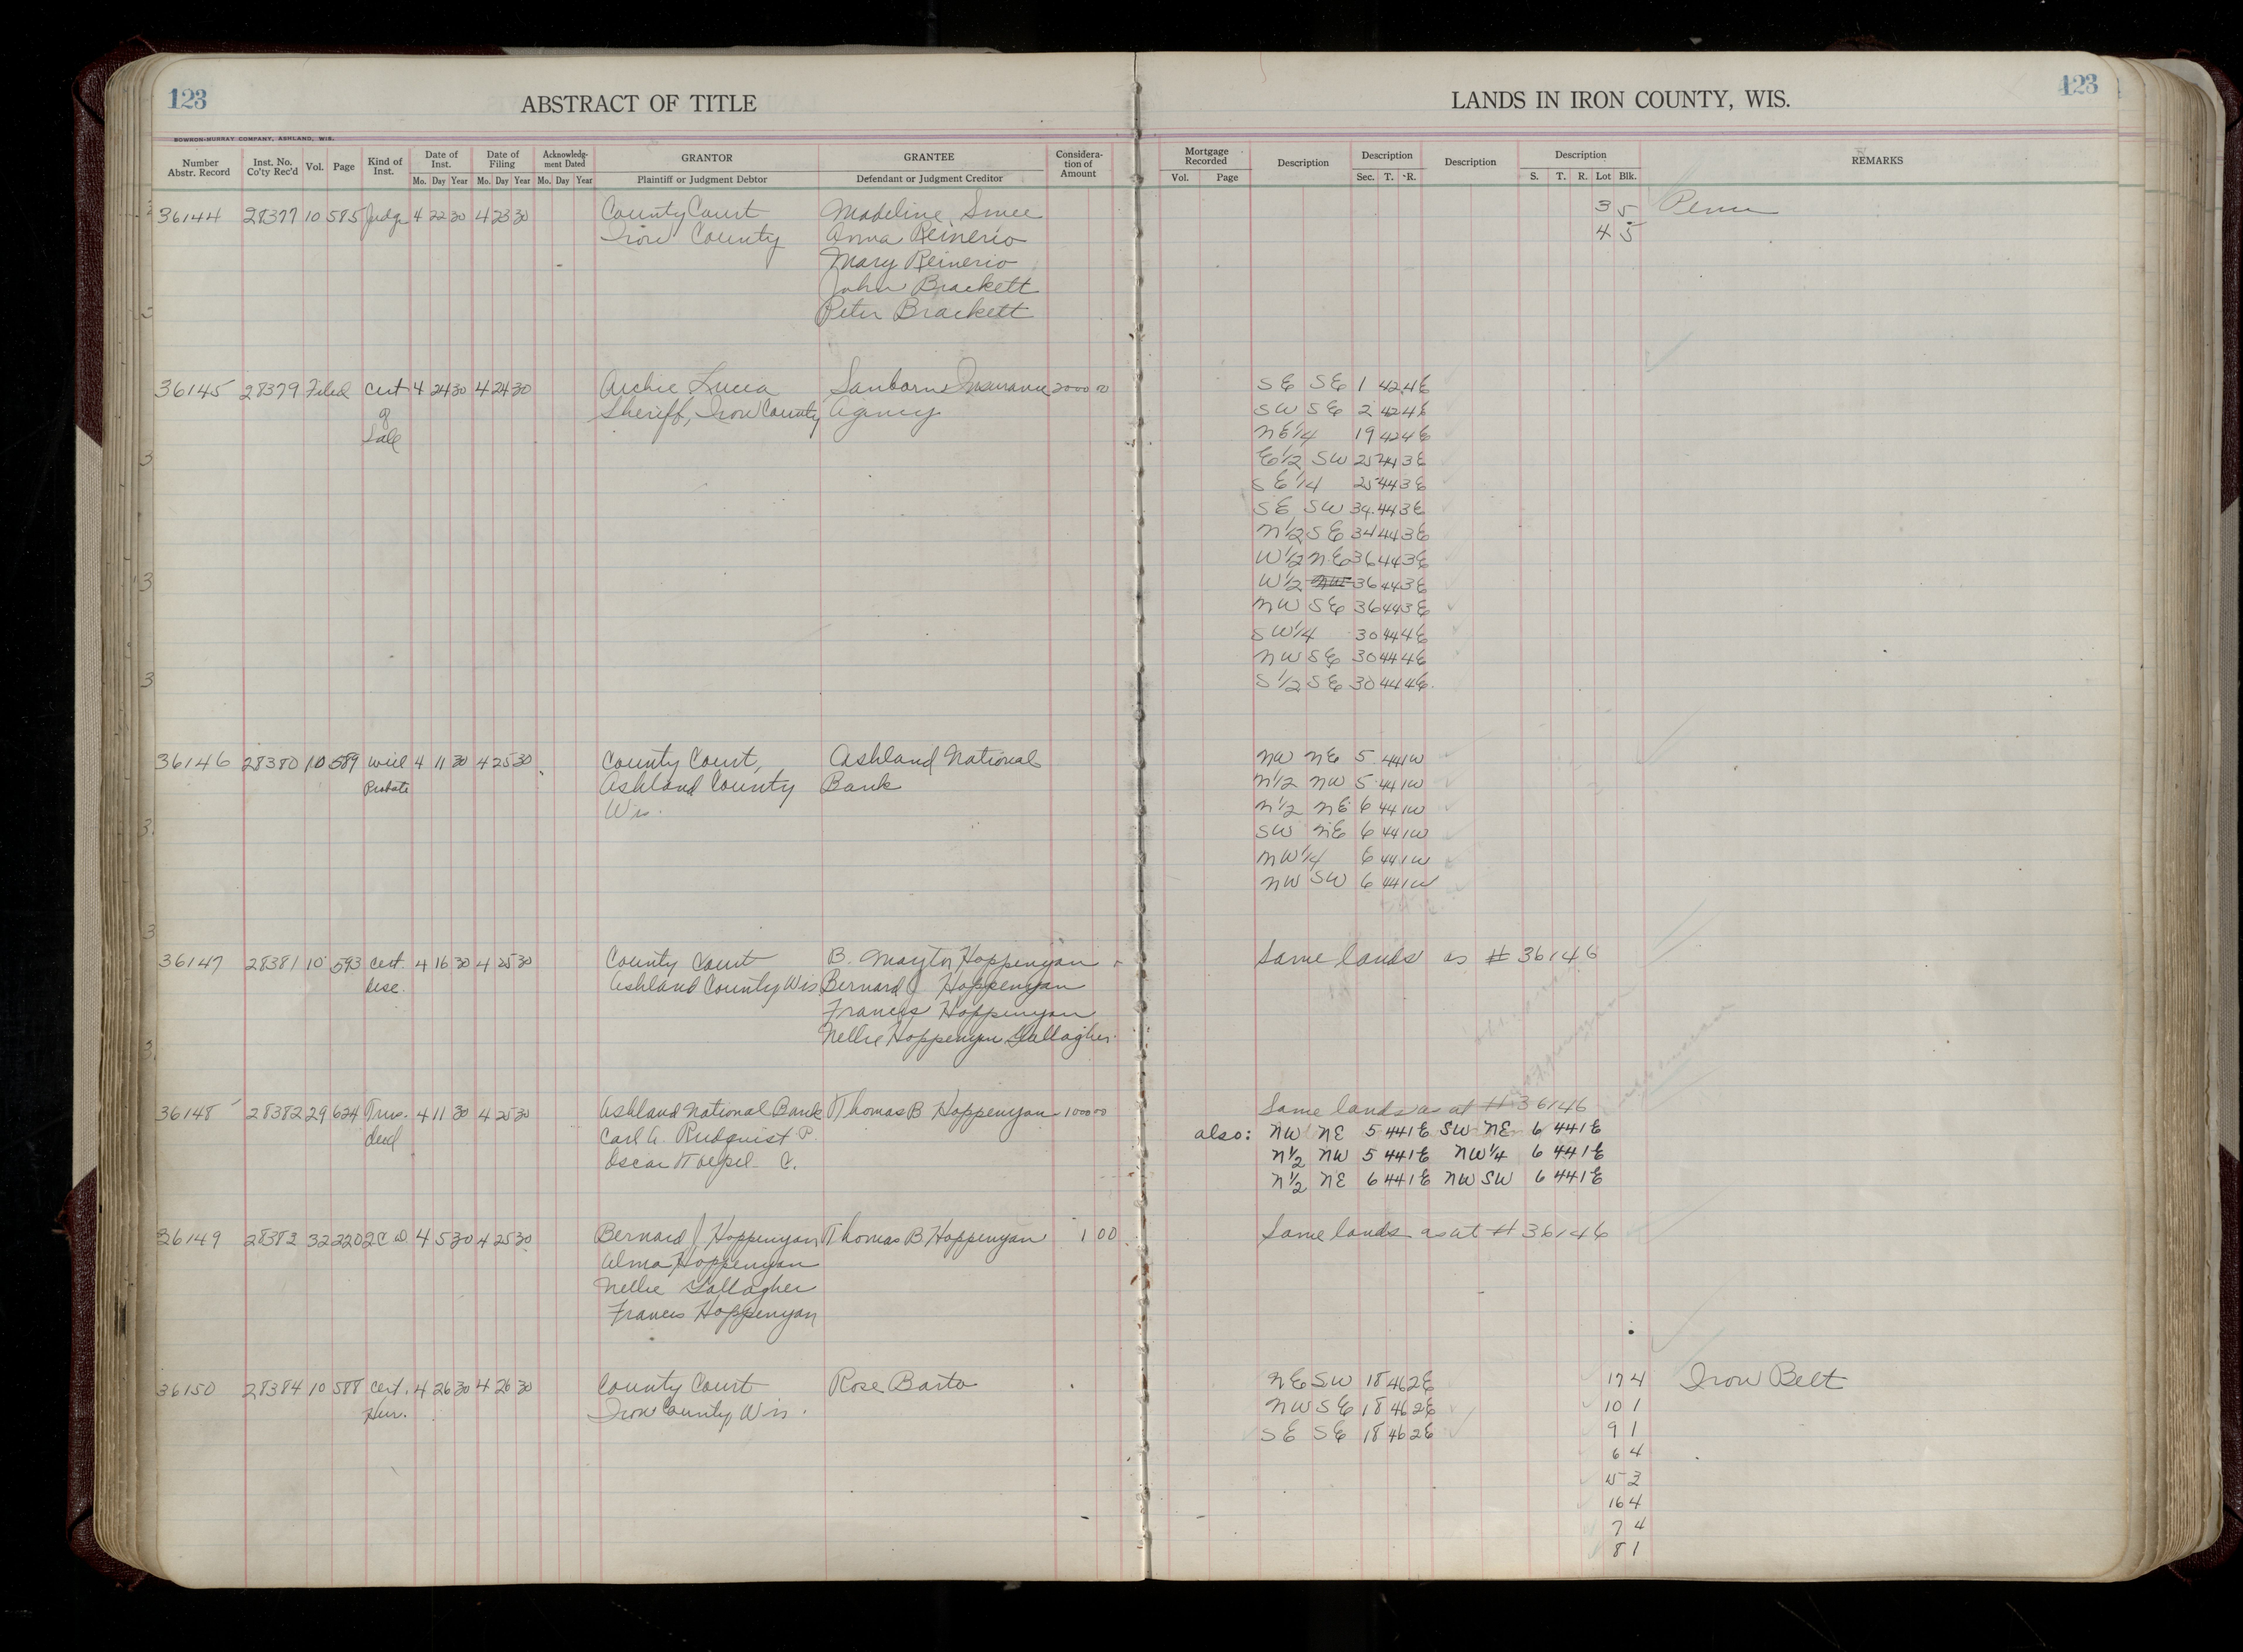 123
ABSTRACT OF TITLE
LANDS IN IRON COUNTY, WIS.
123
BOWRON-MURRAY COMPANY, ASHLAND, WIS.
Number Abstr. Record Inst. No. Co'ty Rec'd Vol. Page Kind of Inst. Date of Inst. Date of Filing Acknowledg-ment Dated GRANTOR GRANTEE Considera-tion of Amount Mortgage Recorded Description Description Description Description REMARKS
Mo. Day Year Mo. Day Year Mo. Day Year Plaintiff or Judgment Debtor Defendant or Judgment Creditor Vol. Page Sec. T. R. S. T. R. Lot Blk.
36144 28377 10 585 Judg 4 22 30 4 23 30 County Court Madeline 3 5 Pence
Iron County Anna Reinerio 4 5
Mary Reinerio
John Brackett
Peter Brackett
36145 28379 Filed Cert 4 24 30 4 24 30 Archie Lucia Sanborn Insurance 2000 00 SE SE 1 42 4E
of Sheriff, Iron County Agency SW SE 2 42 4E
Sale NE 1/4 19 42 4E
E 1/2 SW 25 44 3E
SE 1/4 25 44 3E
SE SW 34 44 3E
N 1/2 SE 34 44 3E
W 1/2 NE 36 44 3E
W 1/2 36 44 3E
NW SE 36 44 3E
SW 1/4 30 44 4E
NW SE 30 44 4E
S 1/2 SE 30 44 4E
36146 28380 10 589 Will 4 11 30 4 25 30 County Court, Ashland National NW NE 5 44 1W
Probate Ashland County Bank N 1/2 NW 5 44 1W
Wis. N 1/2 NE 6 44 1W
SW NE 6 44 1W
NW 1/4 6 44 1W
NW SW 6 44 1W
36147 28381 10 593 Cert. 4 16 30 4 25 30 County Court B. Hoppenyan Same lands as # 36146
Desc. Ashland County Wis Bernard J Hoppenyan
Francis Hoppenyan
Nellie Hoppenyan Gallagher
36148 28382 29 624 Trus. 4 11 30 4 25 30 Ashland National Bank Thomas B Hoppenyan 100 00 Same lands as at # 36146
deed Carl A. Rudquist P also: NW NE 5 44 1E SW NE 6 44 1E
Oscar Toepel C. N 1/2 NW 5 44 1E NW 1/4 6 44 1E
N 1/2 NE 6 44 1E NW SW 6 44 1E
36149 28382 32 220 2C D 4 5 30 4 25 30 Bernard J Hoppenyan Thomas B Hoppenyan 1 00 Same lands as at # 36146
Alma Hoppenyan
Nellie Gallagher
Francis Hoppenyan
36150 28384 10 588 Cert. 4 26 30 4 26 30 County Court Rose Barto NE SW 18 46 2E 17 4 Iron Belt
Heir. Iron County Wis. NW SE 18 46 2E 10 1
SE SE 18 46 2E 9 1
6 4
15 3
16 4
7 4
8 1